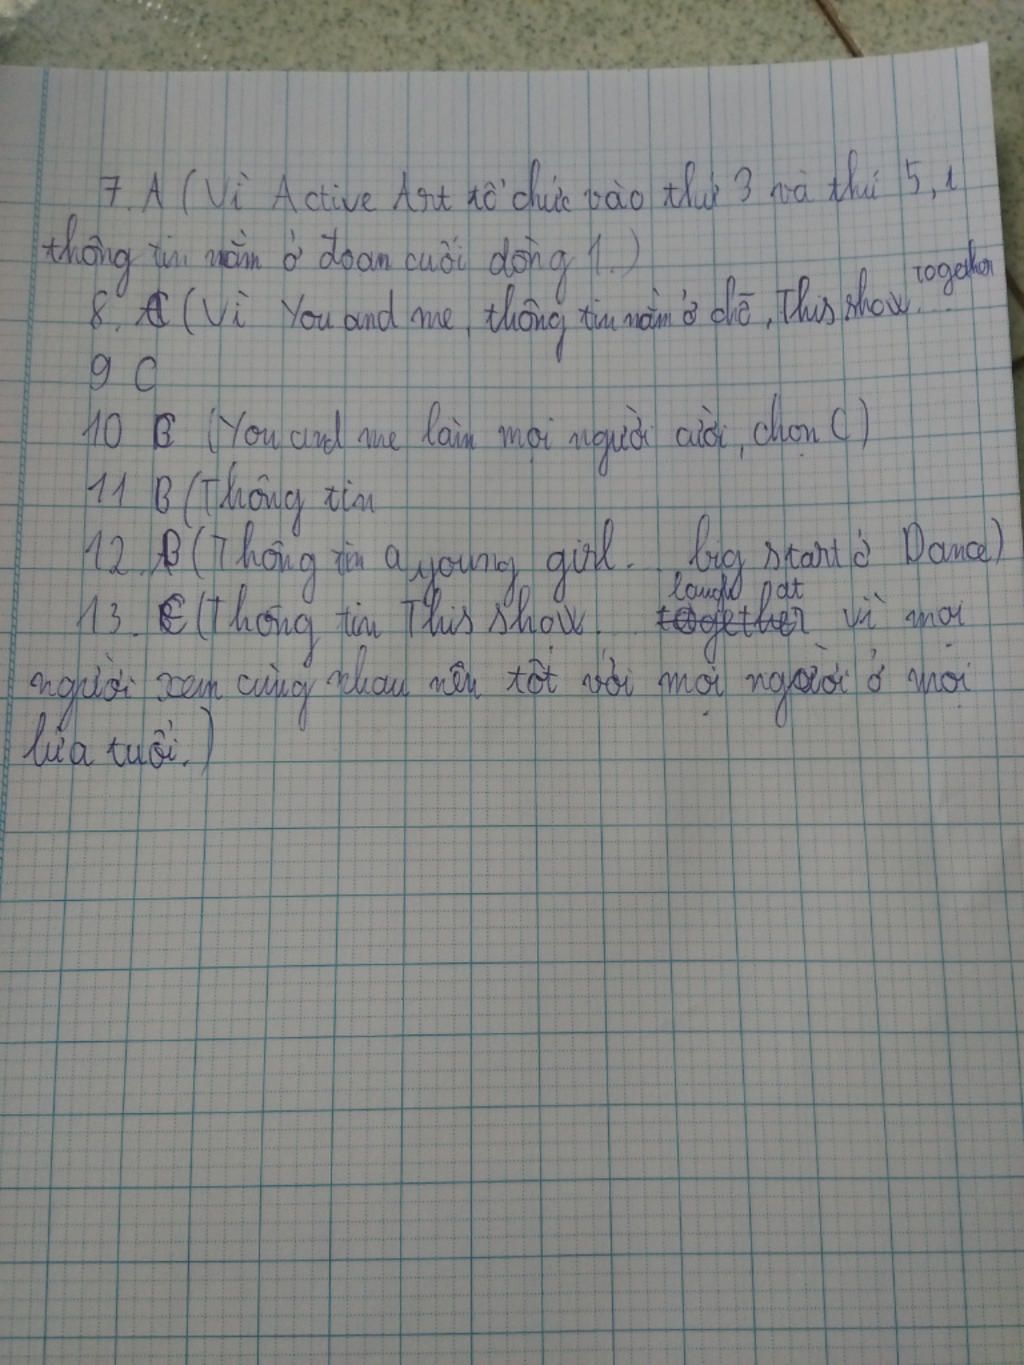 7. A (Vì Active Art tổ chức vào thứ 3 và thứ 5, 1
thông tin nằm ở đoạn cuối dòng 1.)
together
8. C (Vì You and me, thông tin nằm ở chỗ, This show....
9 C
10 C (You and me làm mọi người cười, chọn C)
11 B (Thông tin
12. B (Thông tin a young girl... big start ở Dance)
laugh at
13. C (Thông tin This show... together vì mọi
người xem cùng nhau nên tốt với mọi người ở mọi
lứa tuổi.)